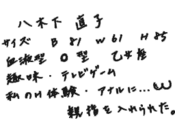 八木下 直子
サイズ B 81 W 61 H 85
血液型 O型 乙女座
趣味・テレビゲーム
私のH体験・アナルに…
親指を入れられた。